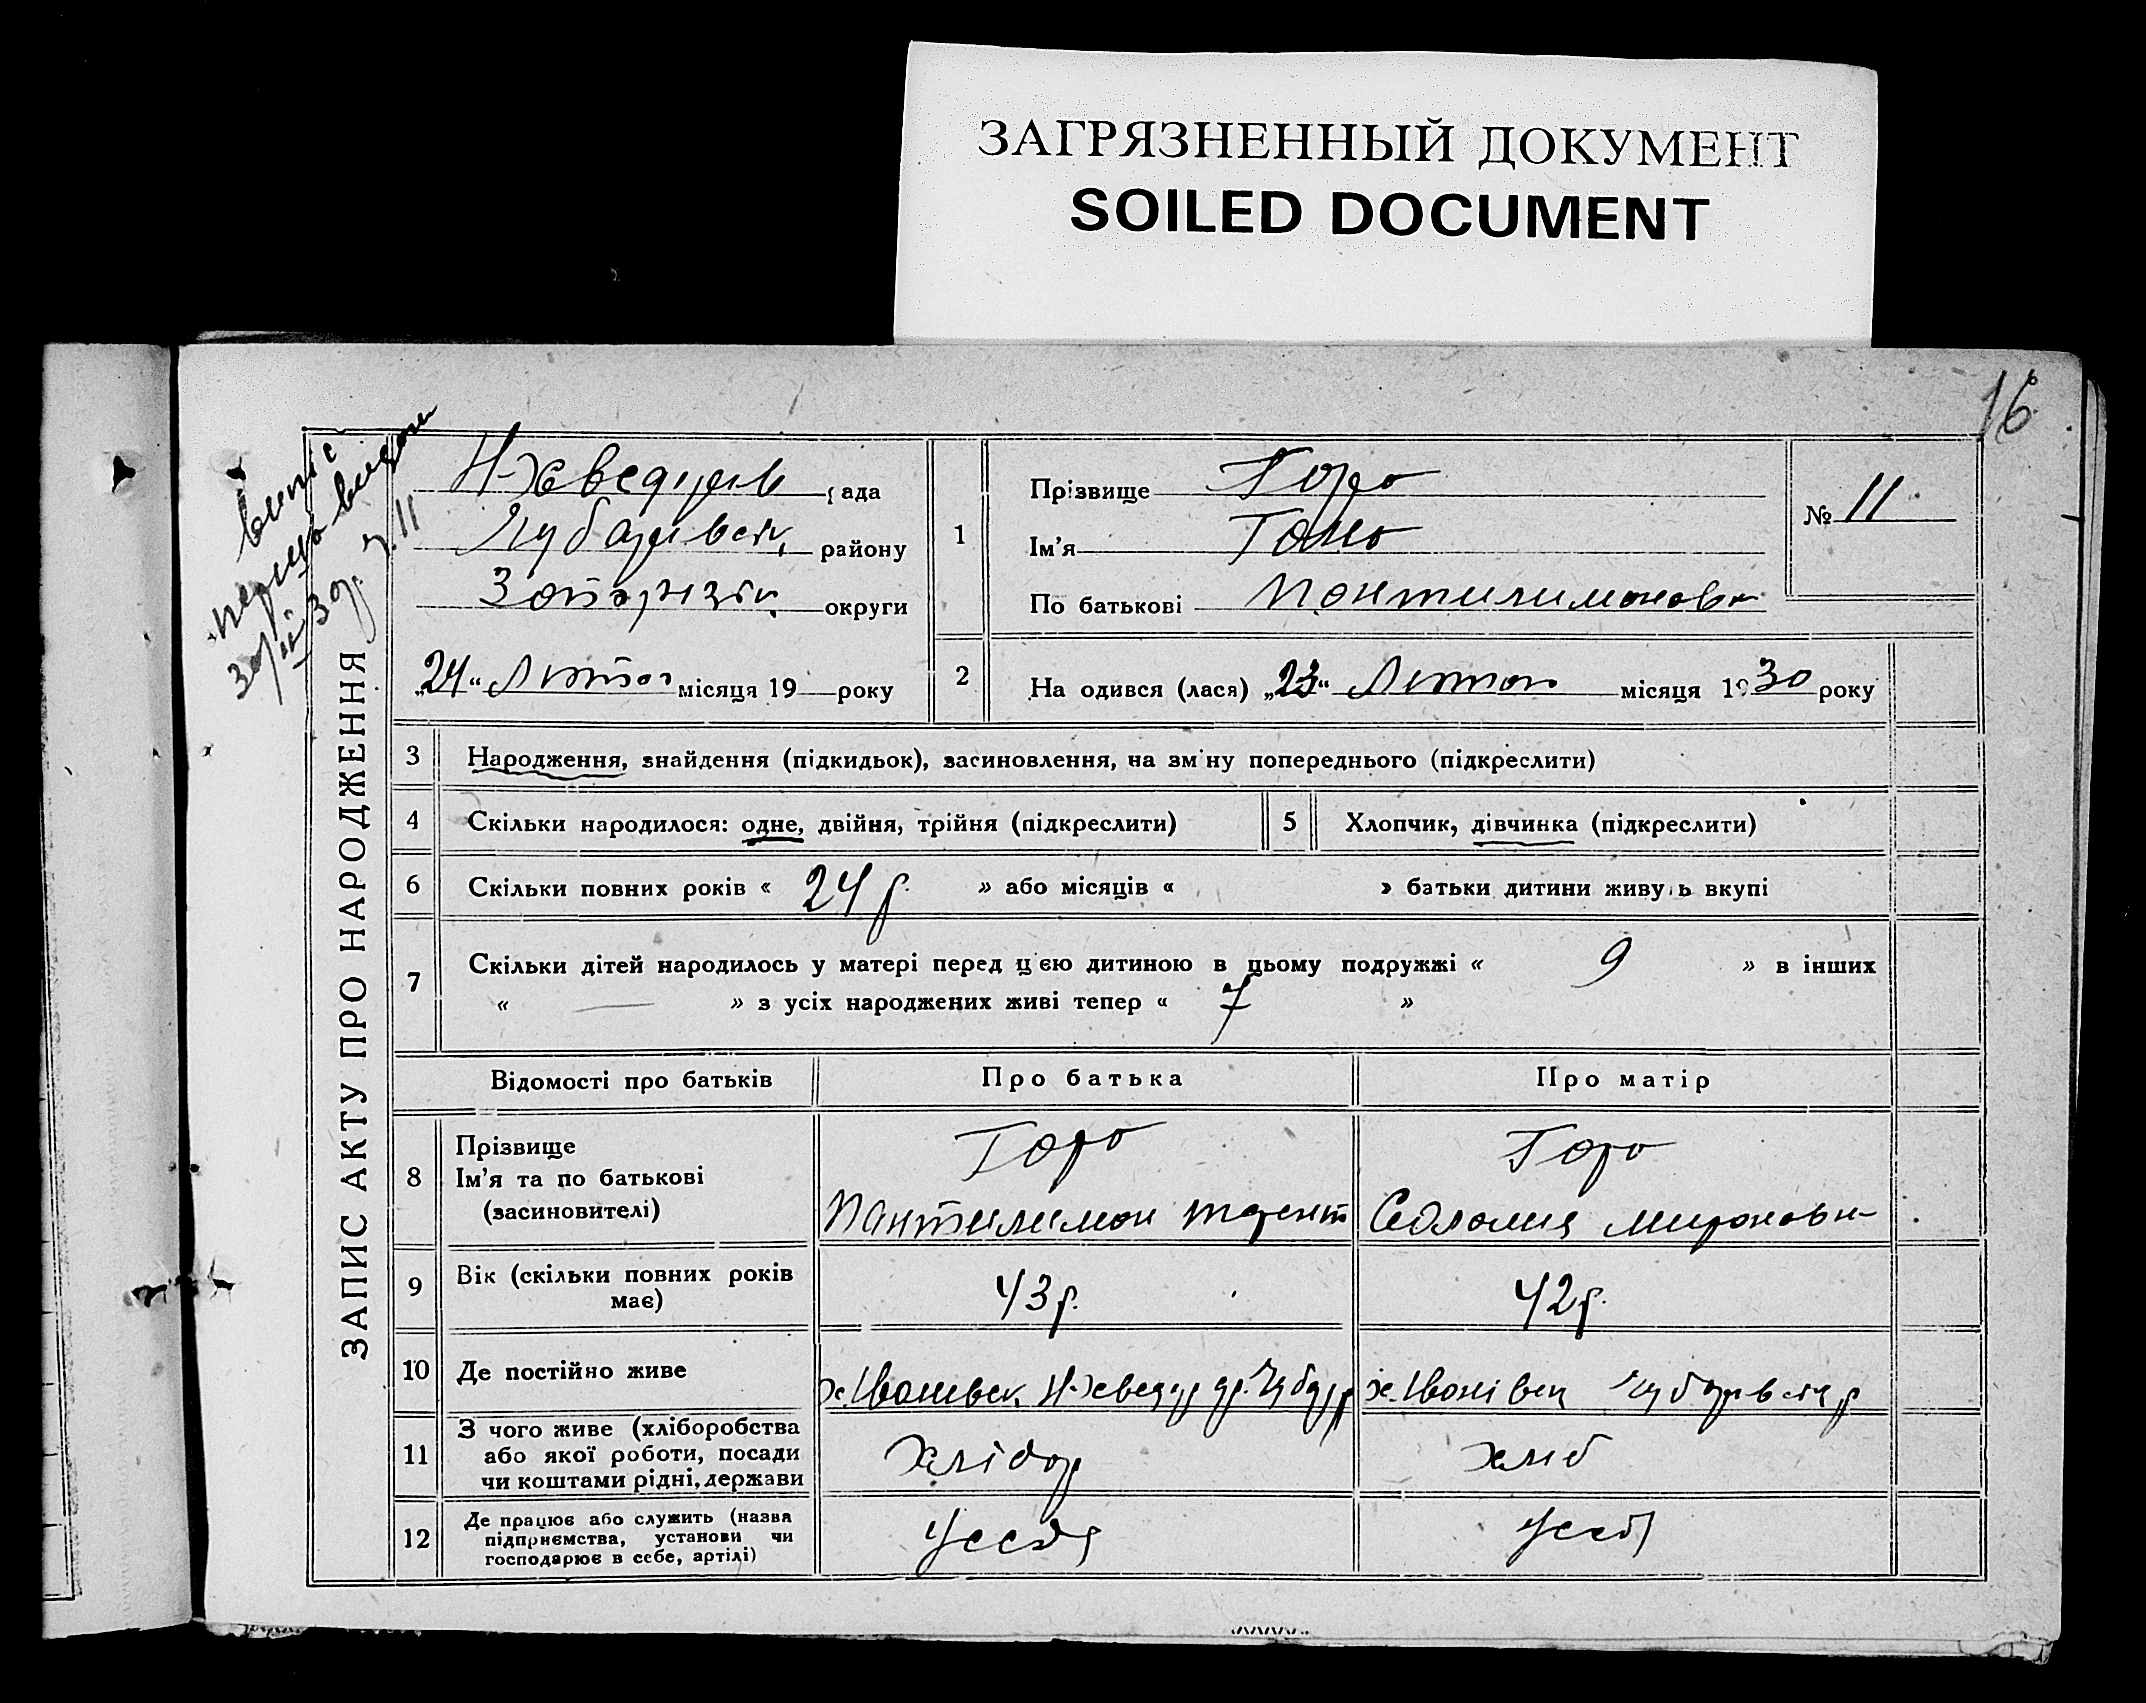 ЗАГРЯЗНЕННЫЙ ДОКУМЕНТ
SOILED DOCUMENT
16
ЗАПИС АКТУ ПРО НАРОДЖЕННЯ
рада
району
округи
„24“ Лютого місяця 19 року
1
Прізвище Гора
Ім'я
По батькові Пантилимоновн
№ 11
2
Народився (лася) „23“ Лютого місяця 1930 року
3 Народження, знайдення (підкидьок), засиновлення, на зміну попереднього (підкреслити)
4 Скільки народилося: одне, двійня, трійня (підкреслити)
5 Хлопчик, дівчинка (підкреслити)
6 Скільки повних років « 24 р. » або місяців « » батьки дитини живуть вкупі
7 Скільки дітей народилось у матері перед цією дитиною в цьому подружжі « 9 » в інших
« — » з усіх народжених живі тепер « 7 »
Відомості про батьків Про батька Про матір
8 Прізвище Гора Гора
Ім'я та по батькові
(засиновителі) Пантилимон Мироновн
9 Вік (скільки повних років
має) 43 р. 42 р.
10 Де постійно живе
11 З чого живе (хліборобства
або якої роботи, посади
чи коштами рідні, держави
Хлібор хліб
12 Де працює або служить (назва
підприємства, установи чи
господарює в себе, артілі)
У себя У себ